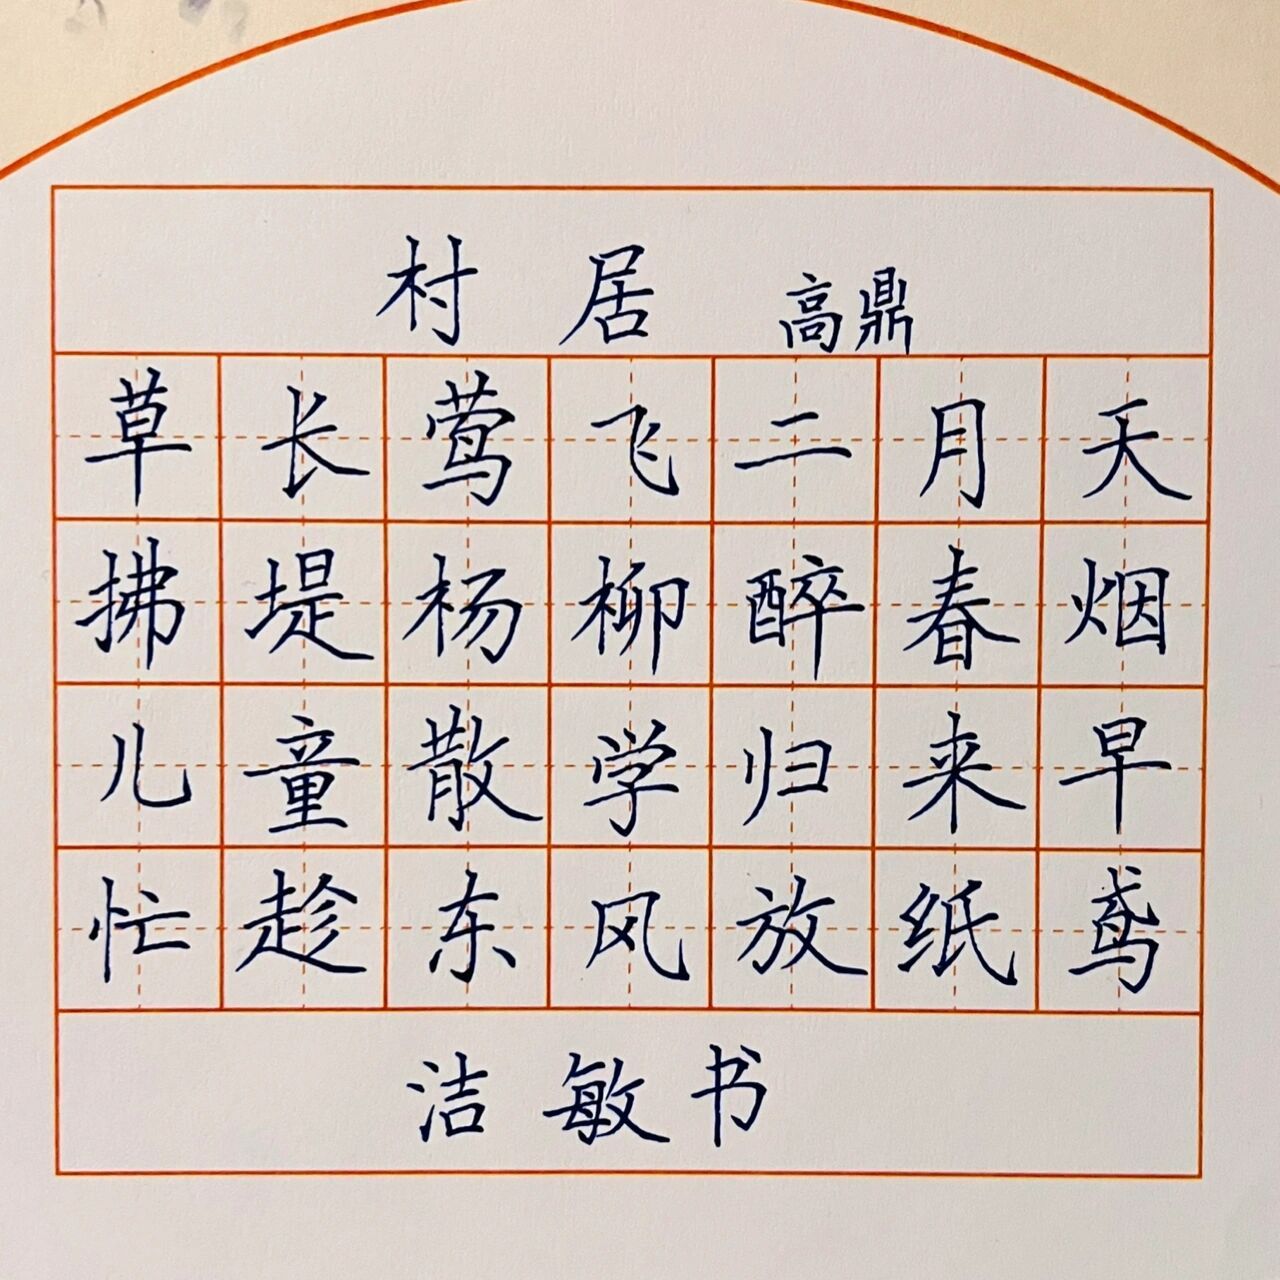 村居 高鼎
草长莺飞二月天
拂堤杨柳醉春烟
儿童散学归来早
忙趁东风放纸鸢
洁敏书